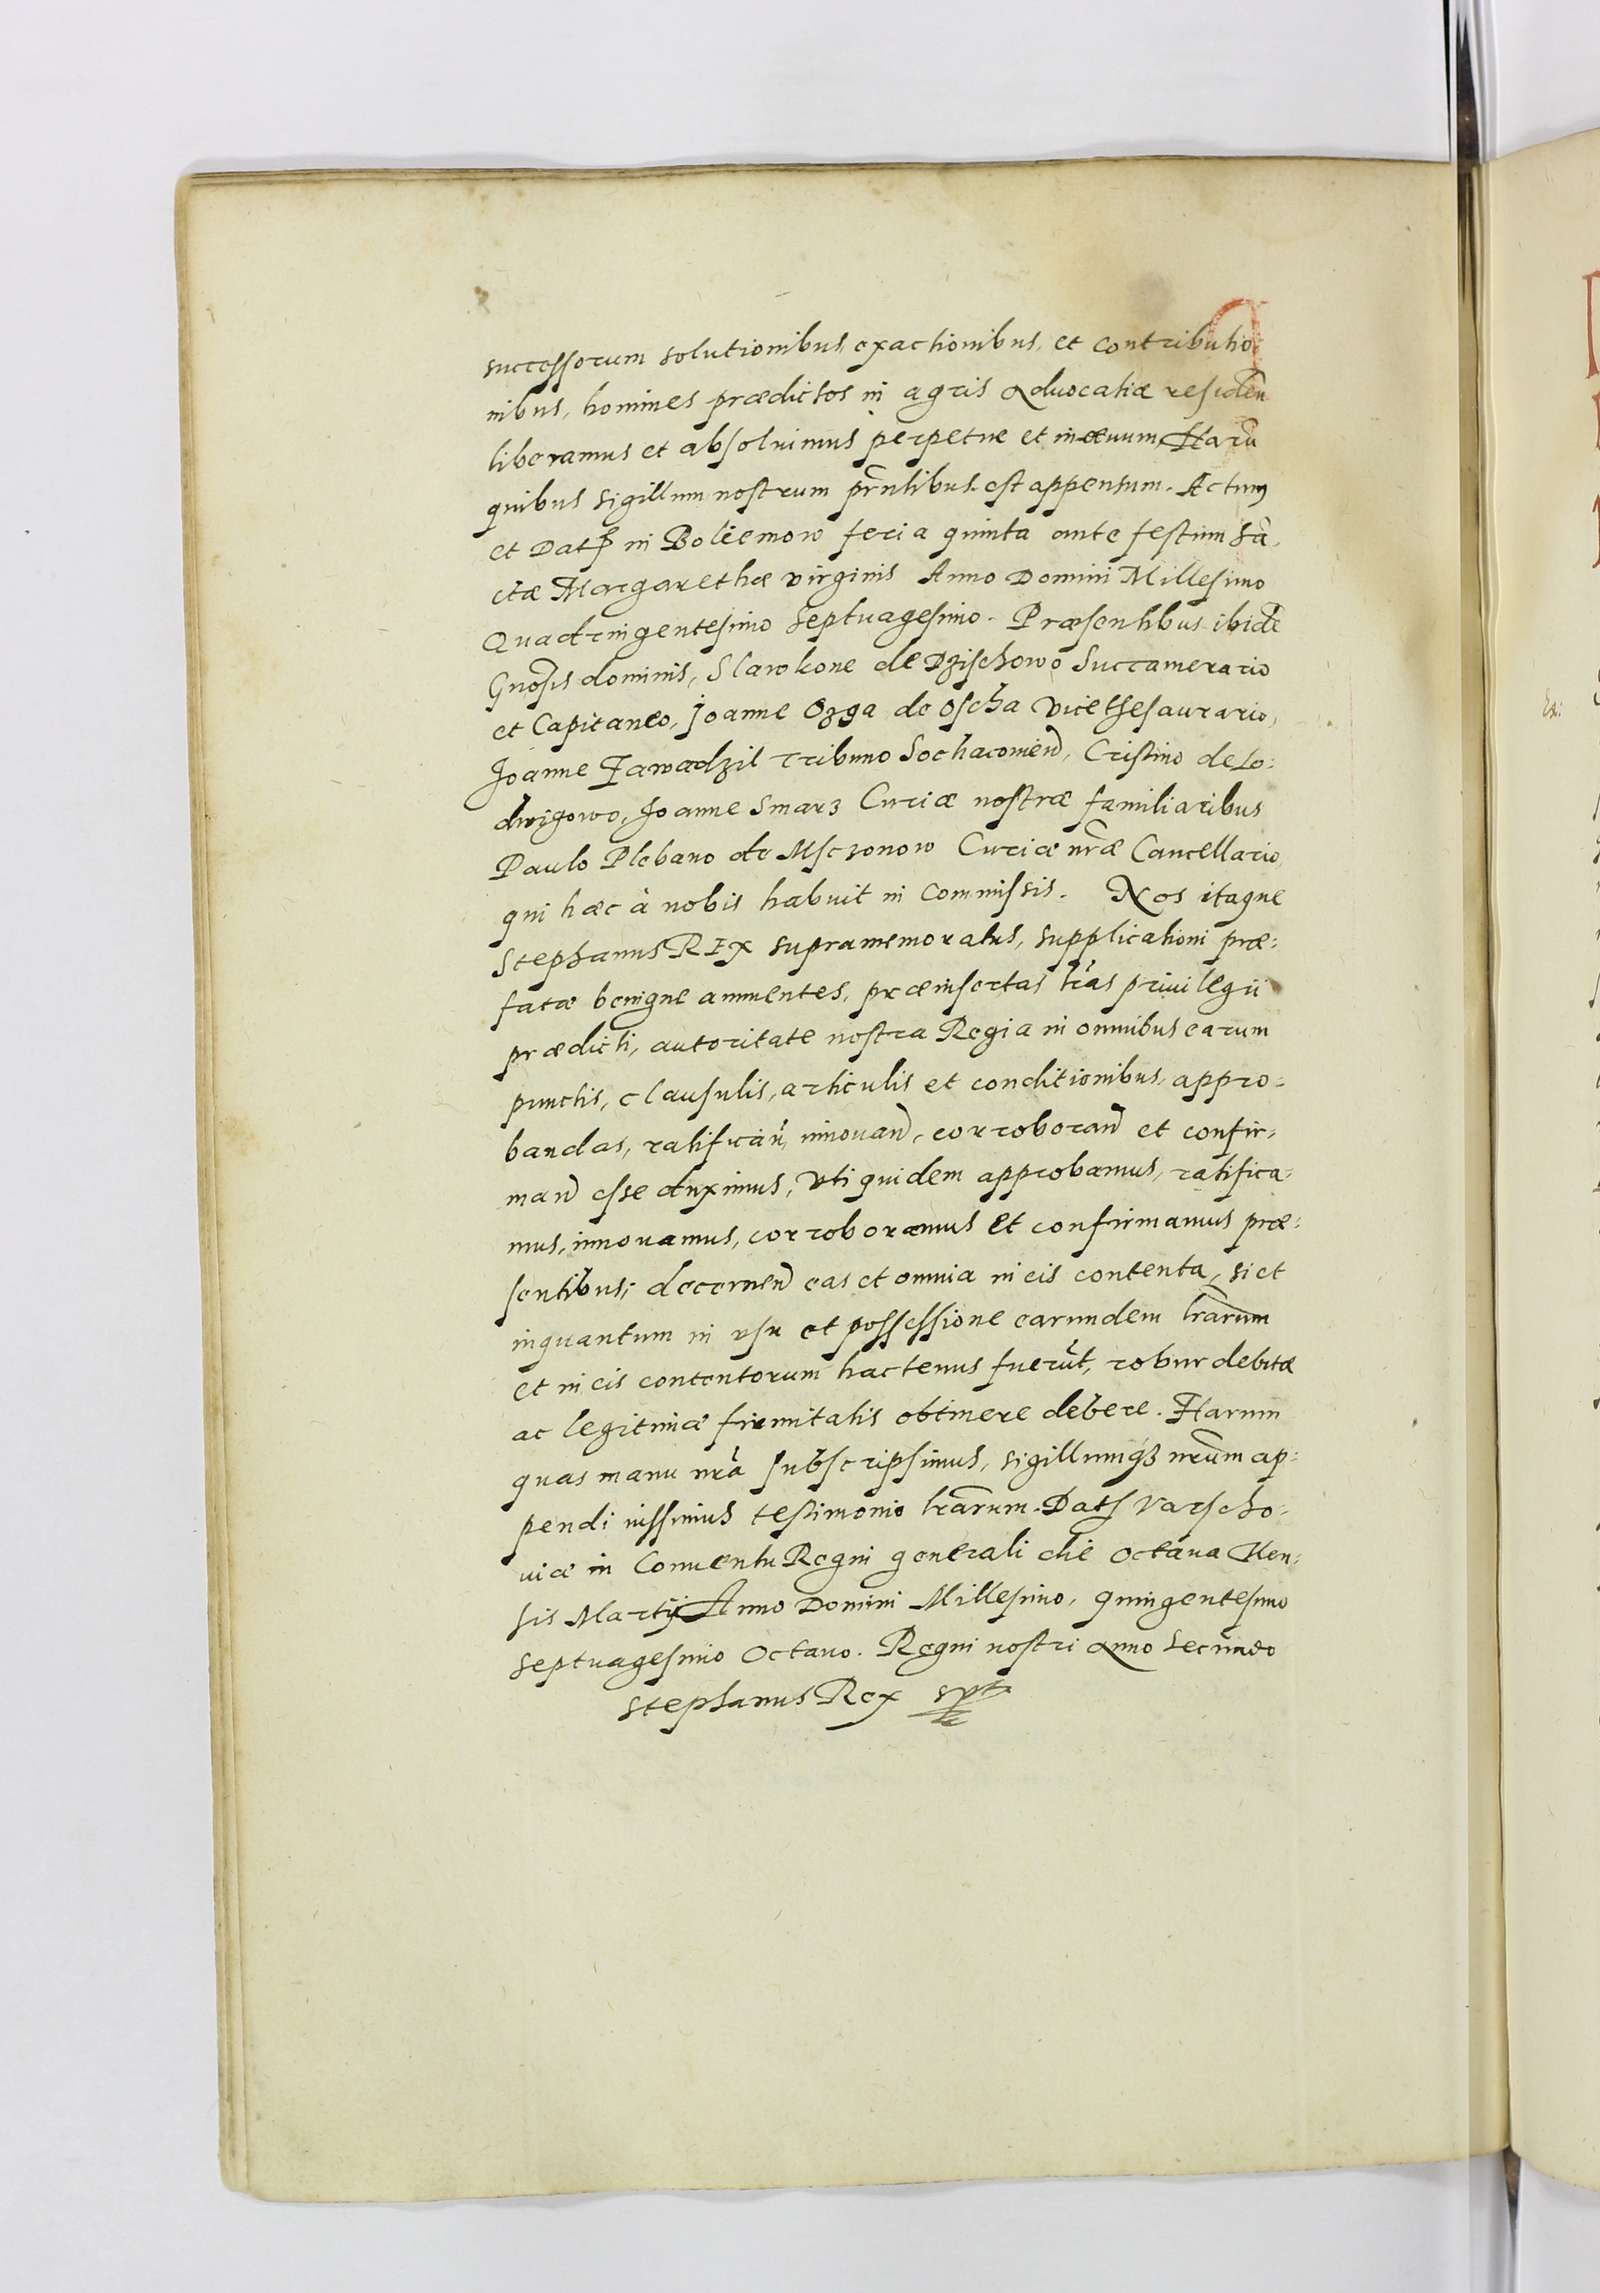 successorum solutionibus exactionibus, et contributio
nibus, homines prædictos in agris aduocatiæ residen̄
liberamus et absoluimus perpetue et in æuum. Harū
quibus sigillum nostrum pn̄tibus est appensum. Actum
et Dat in Boliemow feria quinta ante festum Sā
ctæ Margarethæ virginis Anno Domini Millesimo
Quadringentesimo Septuagesimo. Præsentibus ibidē
Gn̄osis dominis, Slawkone de Dzischowo Succamerario
et Capitaneo, Joanne Ozga de Oscha Vicethesaurario,
Joanne Zawadzil Tribuno Sochaconien̄, Cristino de Lo:
dwigowo, Joanne Smarz Curiæ nostræ familiaribus
Paulo Plebano de Msczonow Curiæ nr̄æ Cancellario,
qui hæc à nobis habuit in commissis. Nos itaque
Stephanus REX supramemoratus, supplicationi præ:
fatæ benigne annuentes, præinsertas lr̄as priuilegii
prædicti, autoritate nostra Regia in omnibus earum
punctis, clausulis, articulis et conditionibus, appro:
bandas, ratifican̄, innouan̄, corroboran̄ et confir:
man̄ esse duximus, Vti quidem approbamus, ratifica:
mus, innouamus, corroboramus et confirmamus præ:
sentibus; decernen̄ eas et omnia in eis contenta, si et
inquantum in vsu et possessione earundem lr̄arum
et in eis contentorum hactenus fuerūt, robur debitæ
ac legitimæ firmitatis obtinere debere. Harum
quas manu nr̄a subscripsimus, sigillumqȝ nr̄um ap:
pendi iussimus testimonio lr̄arum. Dat Varscho:
uiæ in Conuentu Regni generali die Octaua Men:
sis Martij Anno Domini Millesimo, quingentesimo
Septuagesimo Octauo. Regni nostri Anno Secundo
Stephanus Rex
Ex: